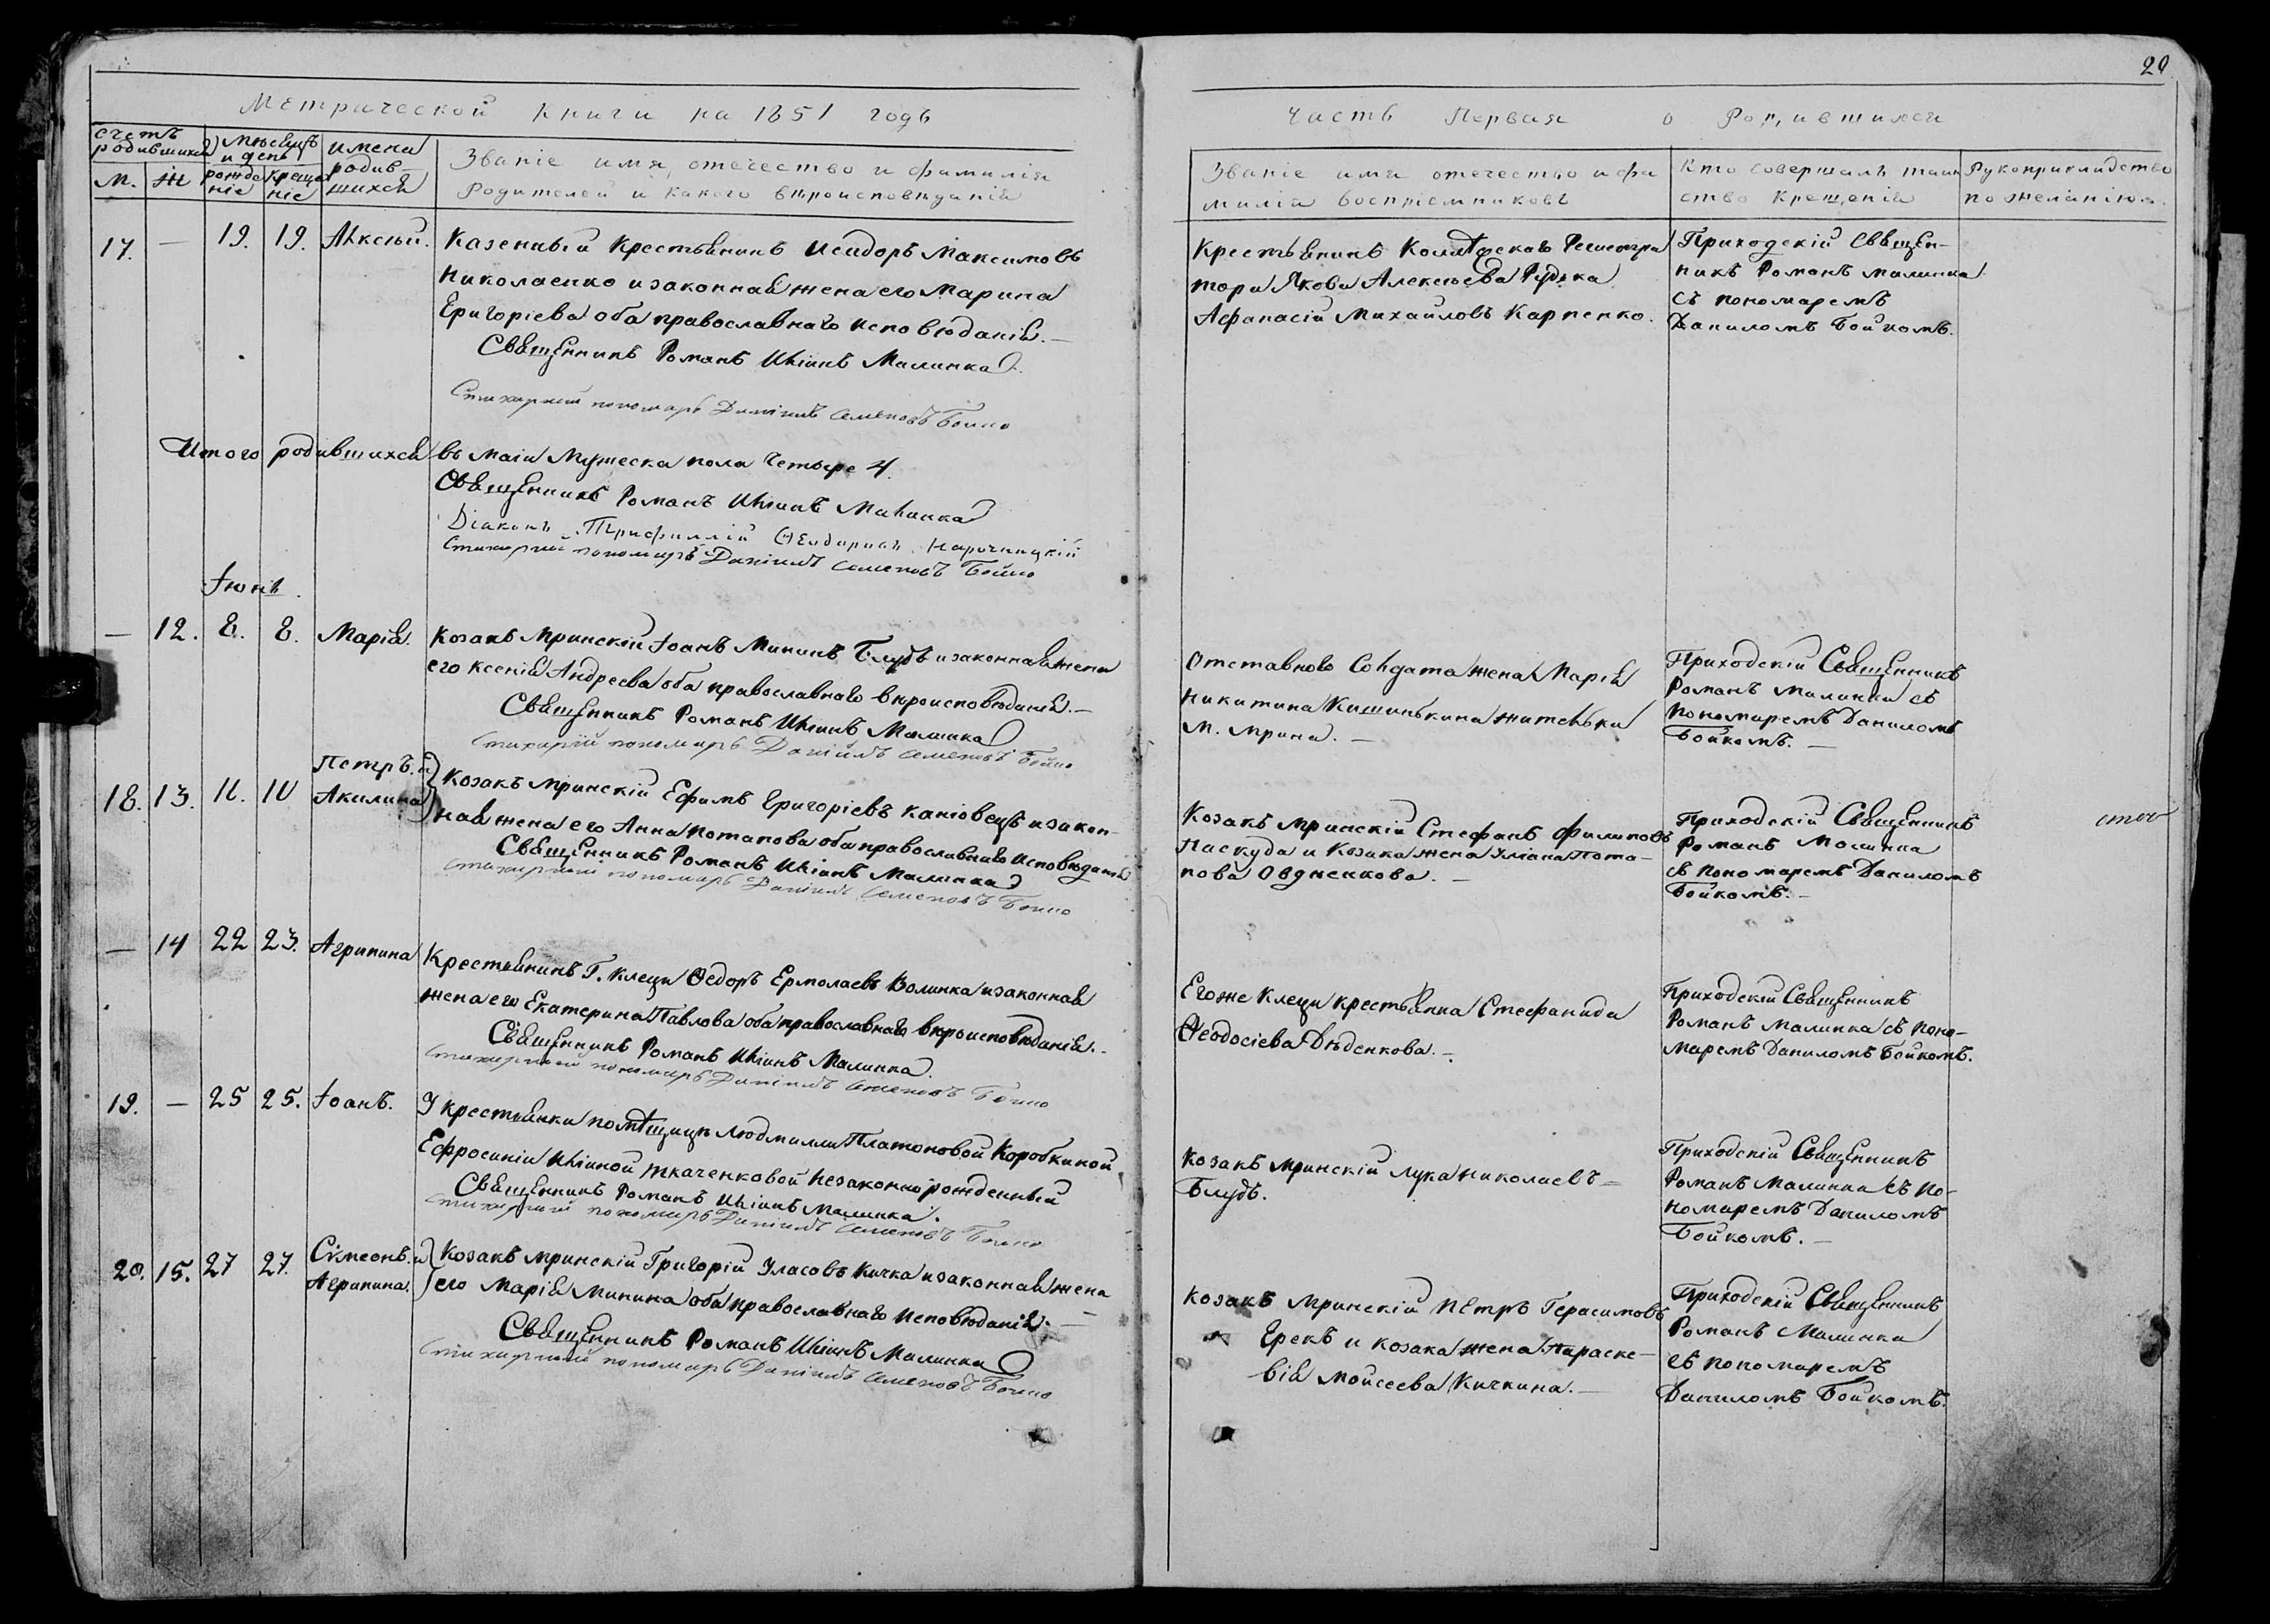 20
Метрической Книги на 1851 годъ
Часть Первая о Родившихся
Счетъ родившихся
М. Ж
Мѣсяцъ и день
рожденіе
крещеніе
имена родившихся
Званіе имя, отечество и фамилія
Родителей и какого вѣроисповѣданія
Званіе имя отечество и фа
милія воспріемниковъ
Кто совершалъ таин
ство Крещенія
Рукоприкладство
по желанію
17. — 19. 19. Алексѣй.
Казенный Крестьянинъ Исидоръ Максимовъ
Николаенко и законная жена его Марина
Григоріева оба православнаго исповѣданія. —
Священникъ Романъ Иліинъ Малинка
Стихарный пономарь Даніилъ Семеновъ Бойко
Крестьянинъ Колѣжскаго Регистра
тора Якова Алексѣева Рудька
Афанасій Михайловъ Карпенко.
Приходскій Священ-
никъ Романъ Малинка
съ пономаремъ
Даниломъ Бойкомъ.
Итого родившихся въ маіи Мужеска пола Четыре 4.
Священникъ Романъ Иліинъ Малинка
Діаконъ Трифиллій Ѳеодоровъ Нарочницкій
Стихарный пономарь Даніилъ Семеновъ Бойко
Іюнь.
— 12. 8. 8. Марія.
Козакъ Мринскій Іоанъ Мининъ Блудъ и законная жена
его Ксенія Андреева оба православнаго вѣроисповѣданія. —
Священникъ Романъ Иліинъ Малинка
Стихарный пономарь Даніилъ Семеновъ Бойко
Отставного Солдата жена Марія
Никитина Кишинькина жителька
М. Мрина. —
Приходскій Священникъ
Романъ Малинка съ
Пономаремъ Даниломъ
Бойкомъ. —
18. 13. Петръ. и
Акилина
Козакъ Мринскій Ефимъ Григоріевъ Каніовецъ и закон-
ная жена его Анна Потапова оба православнаго исповѣданія
Священникъ Романъ Иліинъ Малинка
Стихарный пономарь Даніилъ Семеновъ Бойко
Козакъ Мринскій Стефанъ Филиповъ
Паскуда и Козака жена Уліана Пота-
пова Овдѣенкова. —
Приходскій Священникъ
Романъ Малинка
съ Пономаремъ Даниломъ
Бойкомъ. —
— 14 22 23. Агрипина
Крестьянинъ Г. Клеци Ѳедоръ Ермолаевъ Волинка и законная
жена его Екатерина Павлова оба православнаго вѣроисповѣданія. -
Священникъ Романъ Иліинъ Малинка.
Стихарный пономарь Даніилъ Семеновъ Бойко
Егоже Клеци крестьянка Стефанида
Ѳеодосіева Дѣденкова. —
Приходскій Священникъ
Романъ Малинка съ Поно-
маремъ Даниломъ Бойкомъ.
19. — 25 25. Іоанъ.
У крестьянки помѣщицы Людмилы Платоновой Коробкиной
Ефросиніи Иліиной Ткаченковой Незаконно рожденный
Священникъ Романъ Иліинъ Малинка.
Стихарный пономарь Даніилъ Семеновъ Бойко
Козакъ Мринскій Лука Николаевъ —
Блудъ.
Приходскій Священникъ
Романъ Малинка съ По-
номаремъ Даниломъ
Бойкомъ. —
20. 15. 27 27. Сѵмеонъ. и
Агрипина.
Козакъ Мринскій Григорій Уласовъ Кичка и законная жена
его Марія Минина оба православнаго исповѣданія. —
Священникъ Романъ Иліинъ Малинка
Стихарный пономарь Даніилъ Семеновъ Бойко
Козакъ Мринскій Петръ Герасимовъ
Грекъ и козака жена Параске-
вія Мойсеева Кичкина. —
Приходскій Священникъ
Романъ Малинка
съ пономаремъ
Даниломъ Бойкомъ.